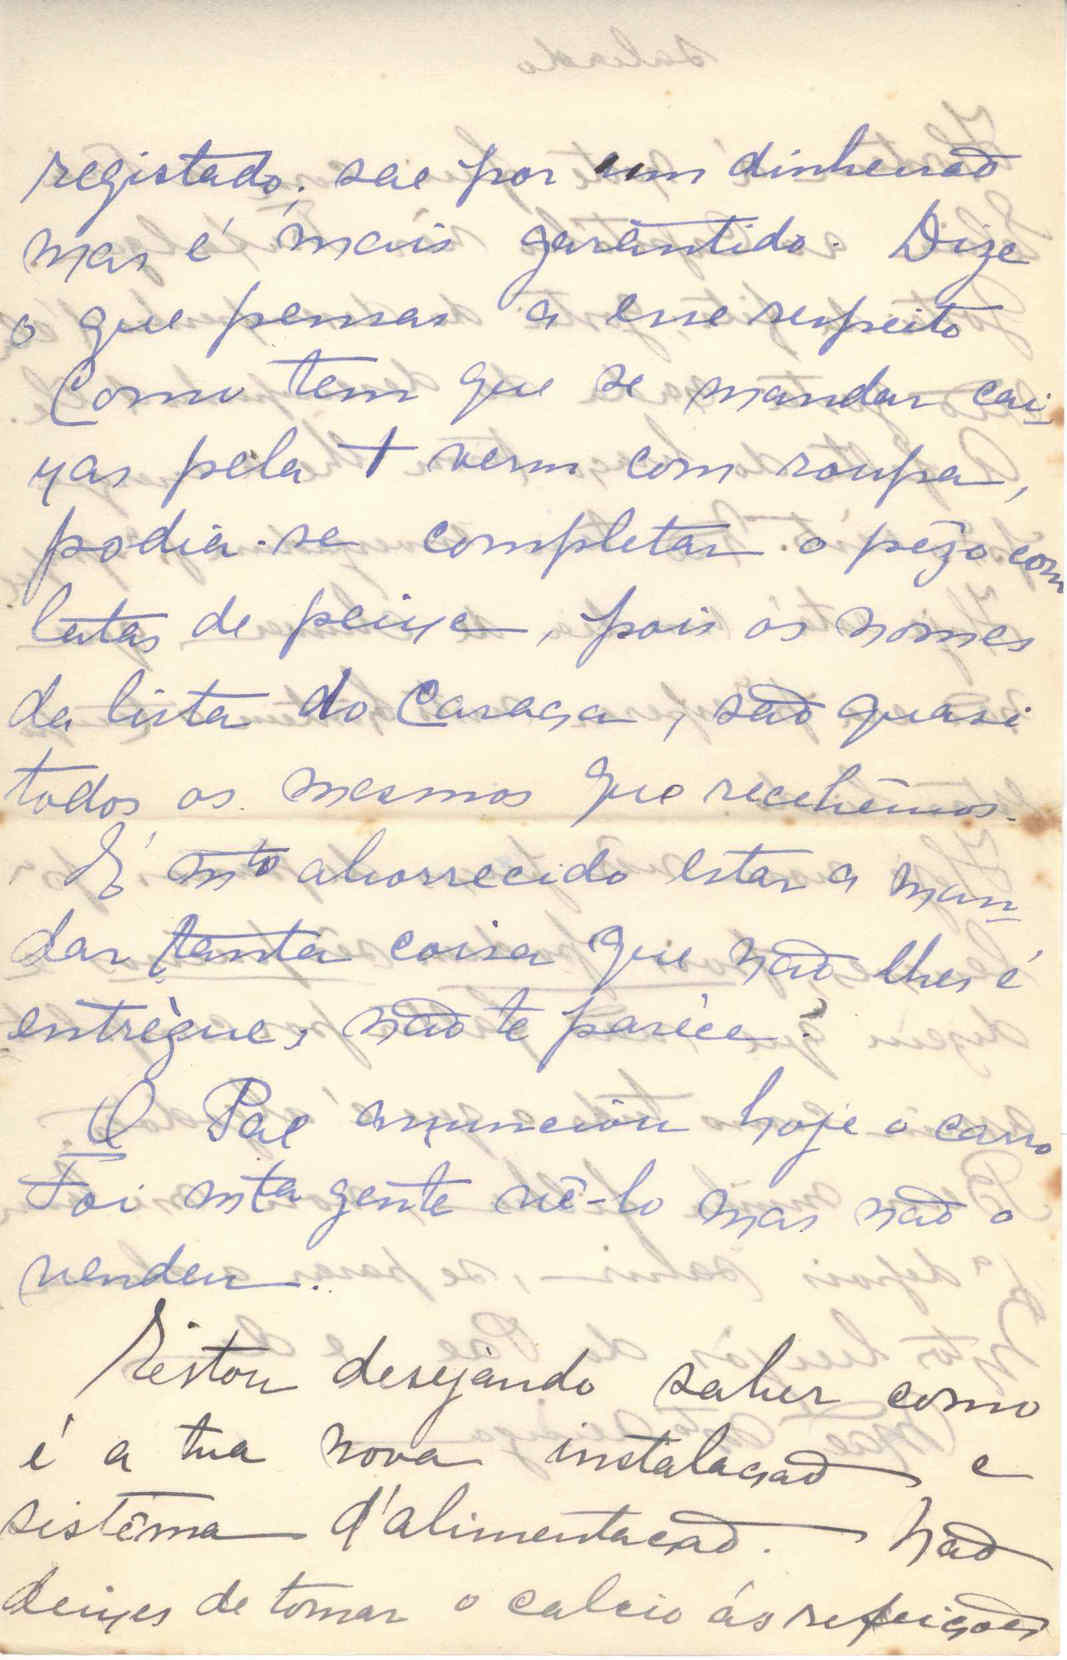 registado; sae por um dinheirão
mas é mais garantido. Dize
o que pensas a esse respeito
Como tem que se mandar cai-
xas pela + verm com roupa,
podia-se completar o pêzo com
latas de peixe, pois os nomes
da lista do Caraça, são quasi
todos os mesmos que recebêmos.
É mto aborrecido estar a man-
dar tanta coisa que não lhes é
entrègue, não te paréce?
O Pae anunciou hoje o carro
Foi mta gente vê-lo mas não o
vendeu.
Estou desejando saber como
é a tua nova instalação e
sistêma d'alimentação. Não
deixes de tomar o calcio ás refeições